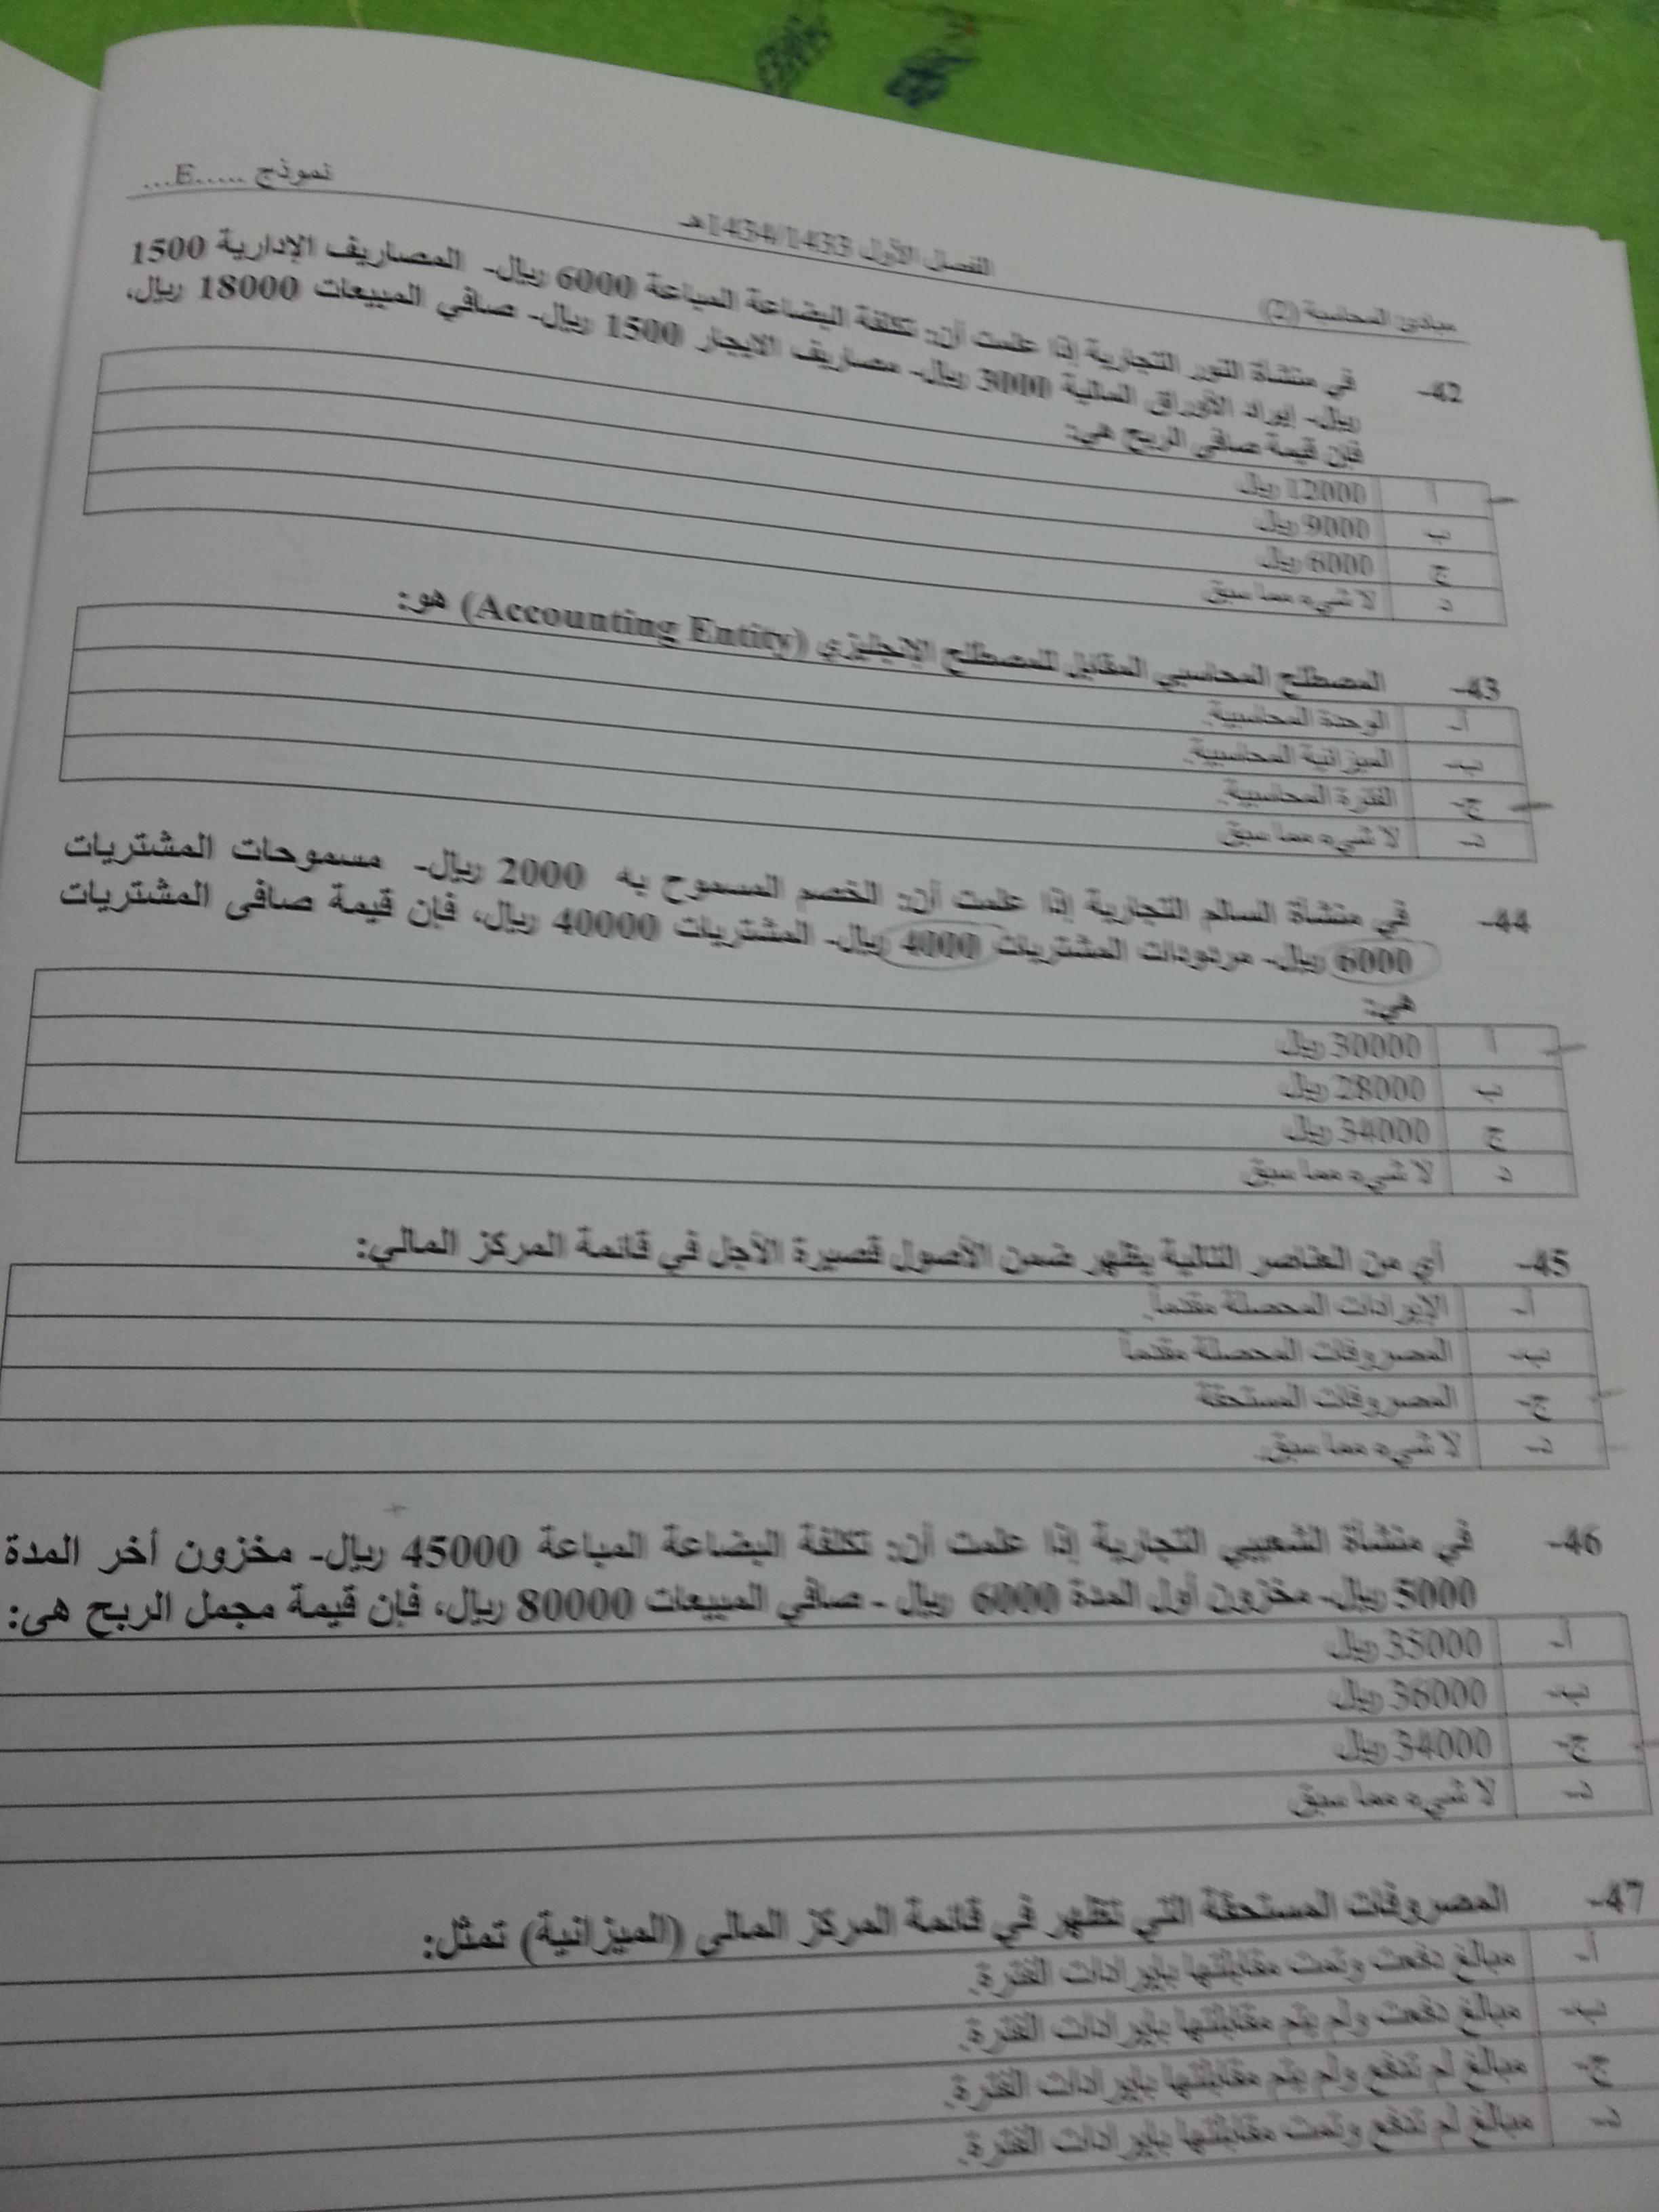 مبادئ المحاسبة (2)
الفصل الأول 1434/1433هـ
نموذج .....E...
42- في منشأة النور التجارية إذا علمت أن: تكلفة البضاعة المباعة 6000 ريال- المصاريف الإدارية 1500
ريال- إيراد الأوراق المالية 3000 ريال- مصاريف الايجار 1500 ريال- صافي المبيعات 18000 ريال،
فإن قيمة صافي الربح هي:
أ 12000 ريال
ب 9000 ريال
ج 6000 ريال
د لا شيء مما سبق
43- المصطلح المحاسبي المقابل للمصطلح الإنجليزي (Accounting Entity) هو:
أ- الوحدة المحاسبية.
ب- الميزانية المحاسبية.
ج- الفترة المحاسبية.
د- لا شيء مما سبق
44- في منشأة السالم التجارية إذا علمت أن: الخصم المسموح به 2000 ريال- مسموحات المشتريات
6000 ريال- مردودات المشتريات 4000 ريال- المشتريات 40000 ريال، فإن قيمة صافى المشتريات
هي:
أ 30000 ريال
ب 28000 ريال
ج 34000 ريال
د لا شيء مما سبق
45- أي من العناصر التالية يظهر ضمن الأصول قصيرة الأجل في قائمة المركز المالي:
أ- الإيرادات المحصلة مقدماً.
ب- المصروفات المحصلة مقدماً
ج- المصروفات المستحقة
د- لا شيء مما سبق.
46- في منشأة الشعيبي التجارية إذا علمت أن: تكلفة البضاعة المباعة 45000 ريال- مخزون أخر المدة
5000 ريال- مخزون أول المدة 6000 ريال - صافي المبيعات 80000 ريال، فإن قيمة مجمل الربح هى:
أ- 35000 ريال
ب- 36000 ريال
ج- 34000 ريال
د- لا شيء مما سبق
47- المصروفات المستحقة التي تظهر في قائمة المركز المالى (الميزانية) تمثل:
أ- مبالغ دفعت وتمت مقابلتها بإيرادات الفترة.
ب- مبالغ دفعت ولم يتم مقابلتها بإيرادات الفترة.
ج- مبالغ لم تدفع ولم يتم مقابلتها بإيرادات الفترة.
د- مبالغ لم تدفع وتمت مقابلتها بإيرادات الفترة.